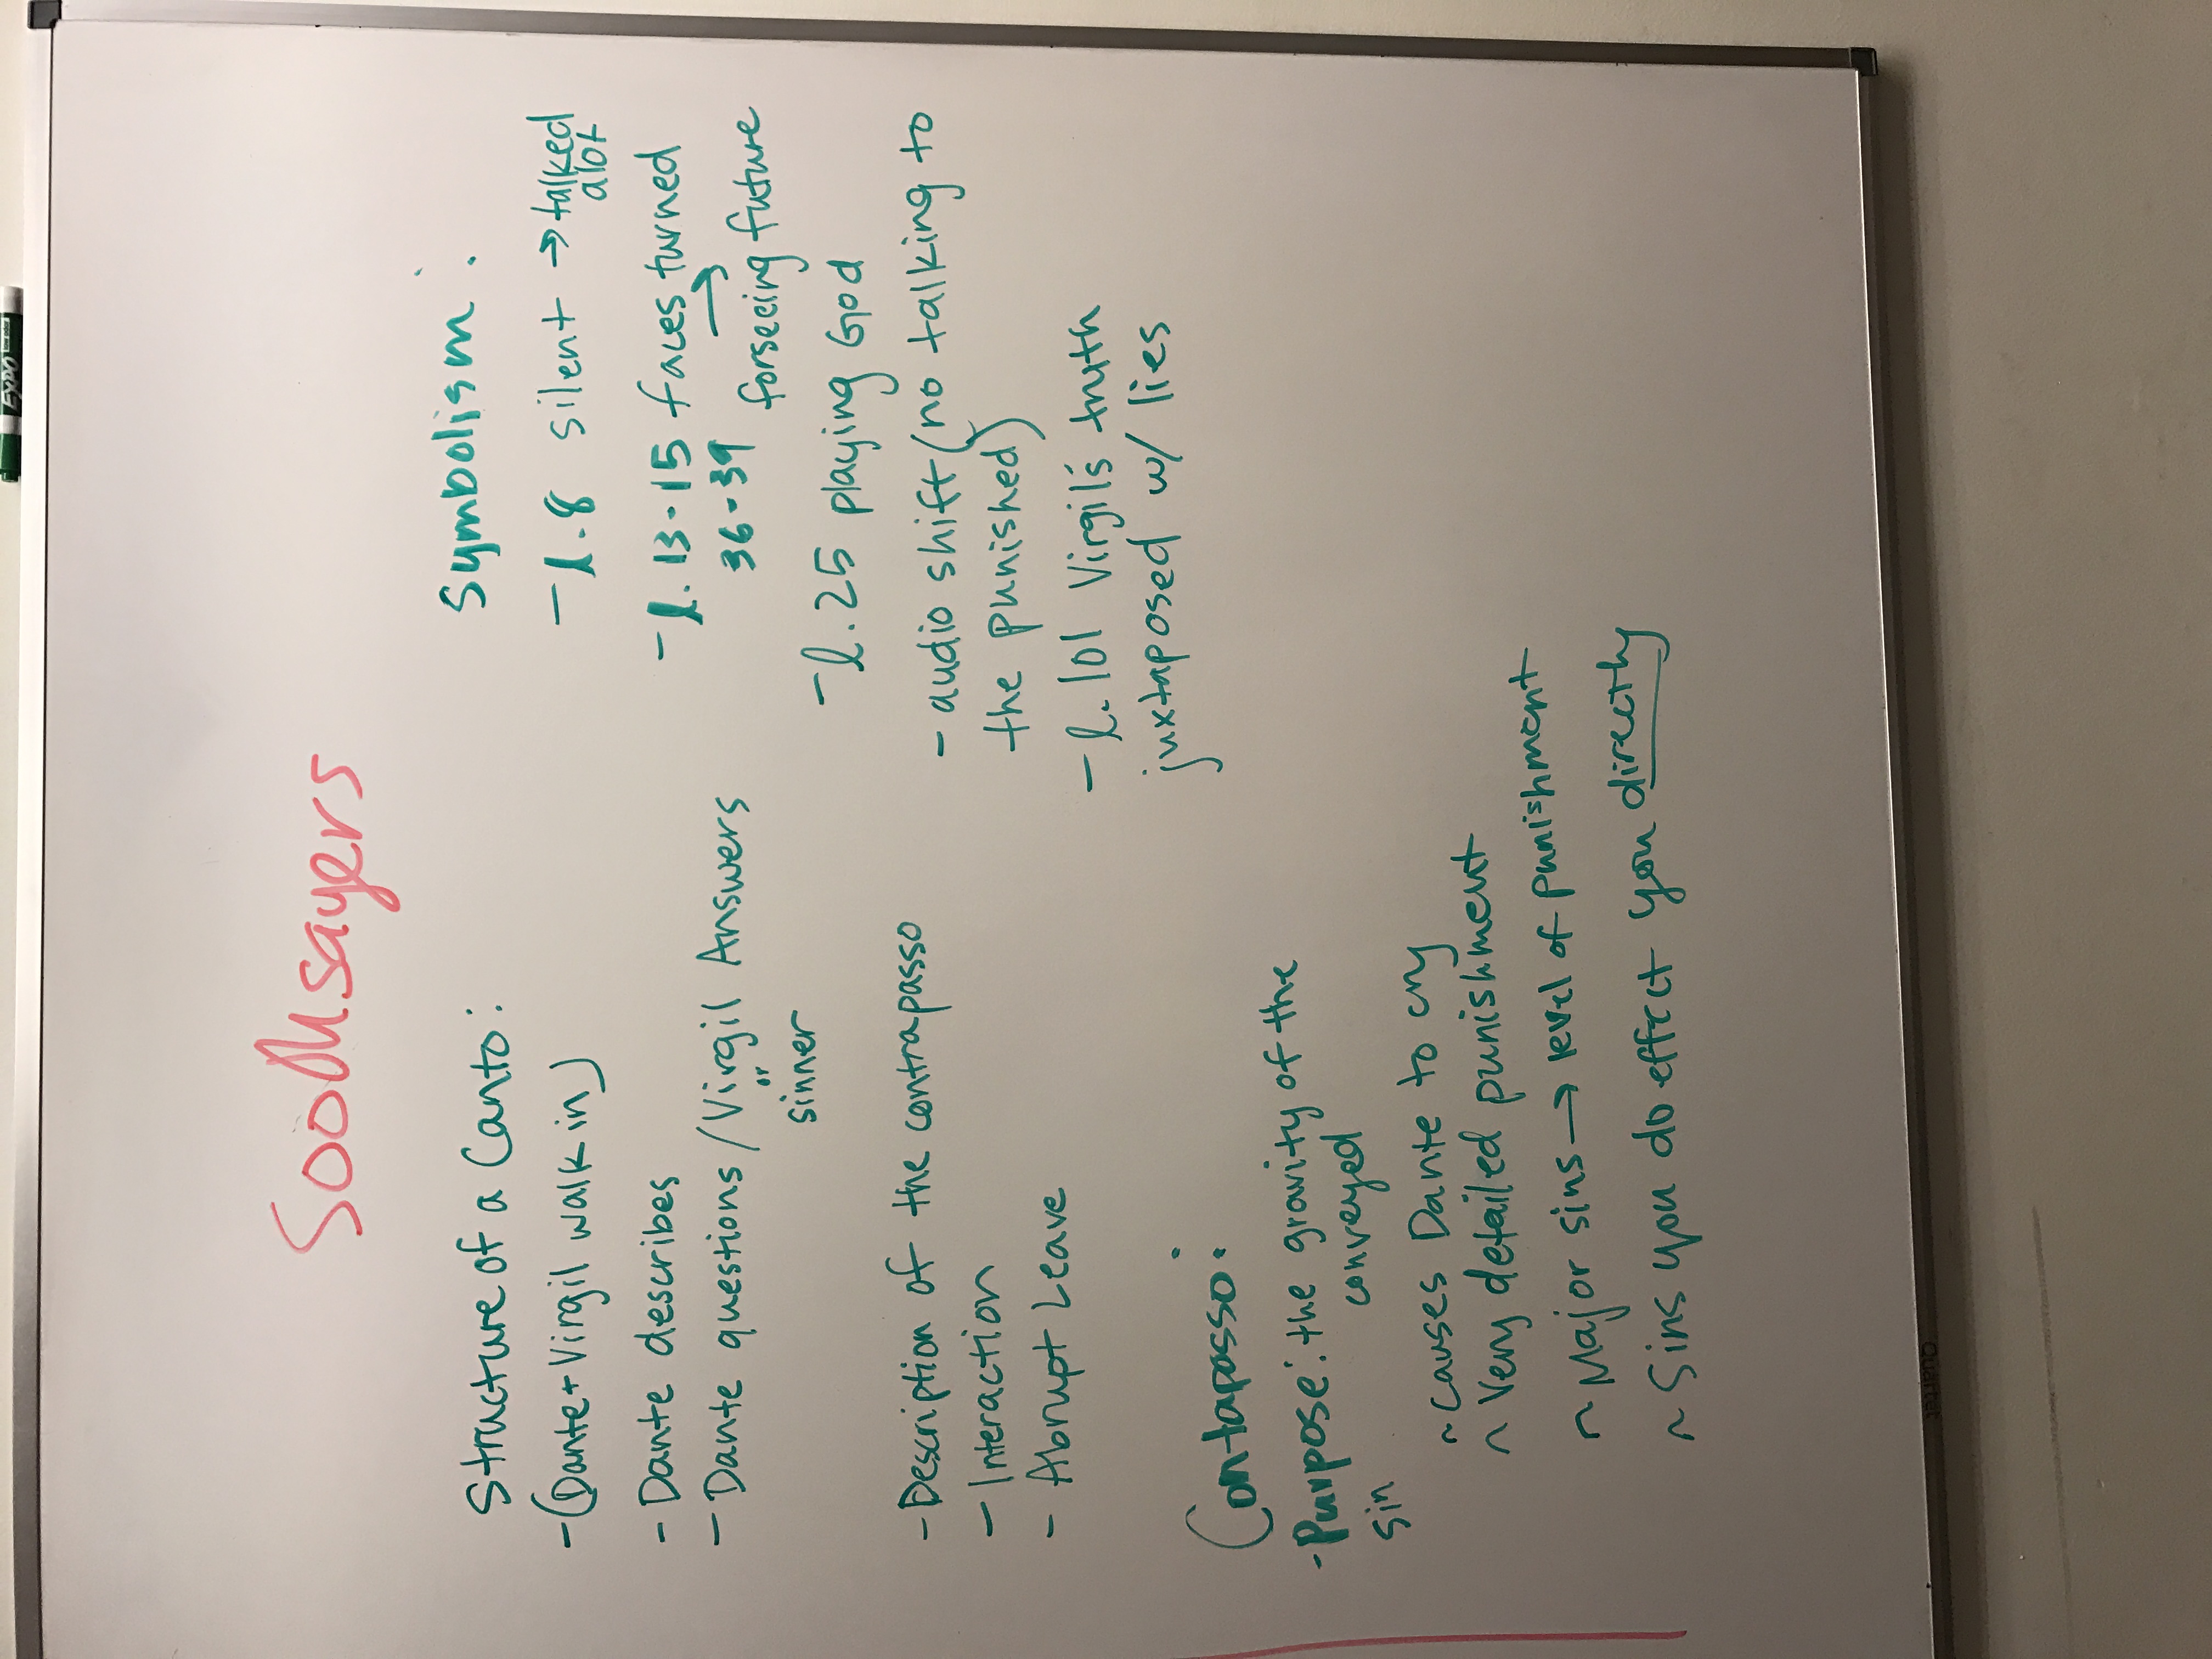 Soothsayers
Structure of a Canto:
- (Dante + Virgil walk in)
- Dante describes
- Dante questions / Virgil Answers
or
sinner
- Description of the contrapasso
- Interaction
- Abrupt Leave
Contapasso:
- Purpose: the gravity of the
sin conveyed
~ causes Dante to cry
~ Very detailed punishment
~ Major sins → level of punishment
~ Sins you do effect you directly
Symbolism:
- l. 8 silent → talked
alot
- l. 13-15 faces turned
36-39 →
forseeing future
- l. 25 playing God
- audio shift (no talking to
the punished)
- l. 101 Virgil's truth
juxtaposed w/ lies
EXPO
Quartet